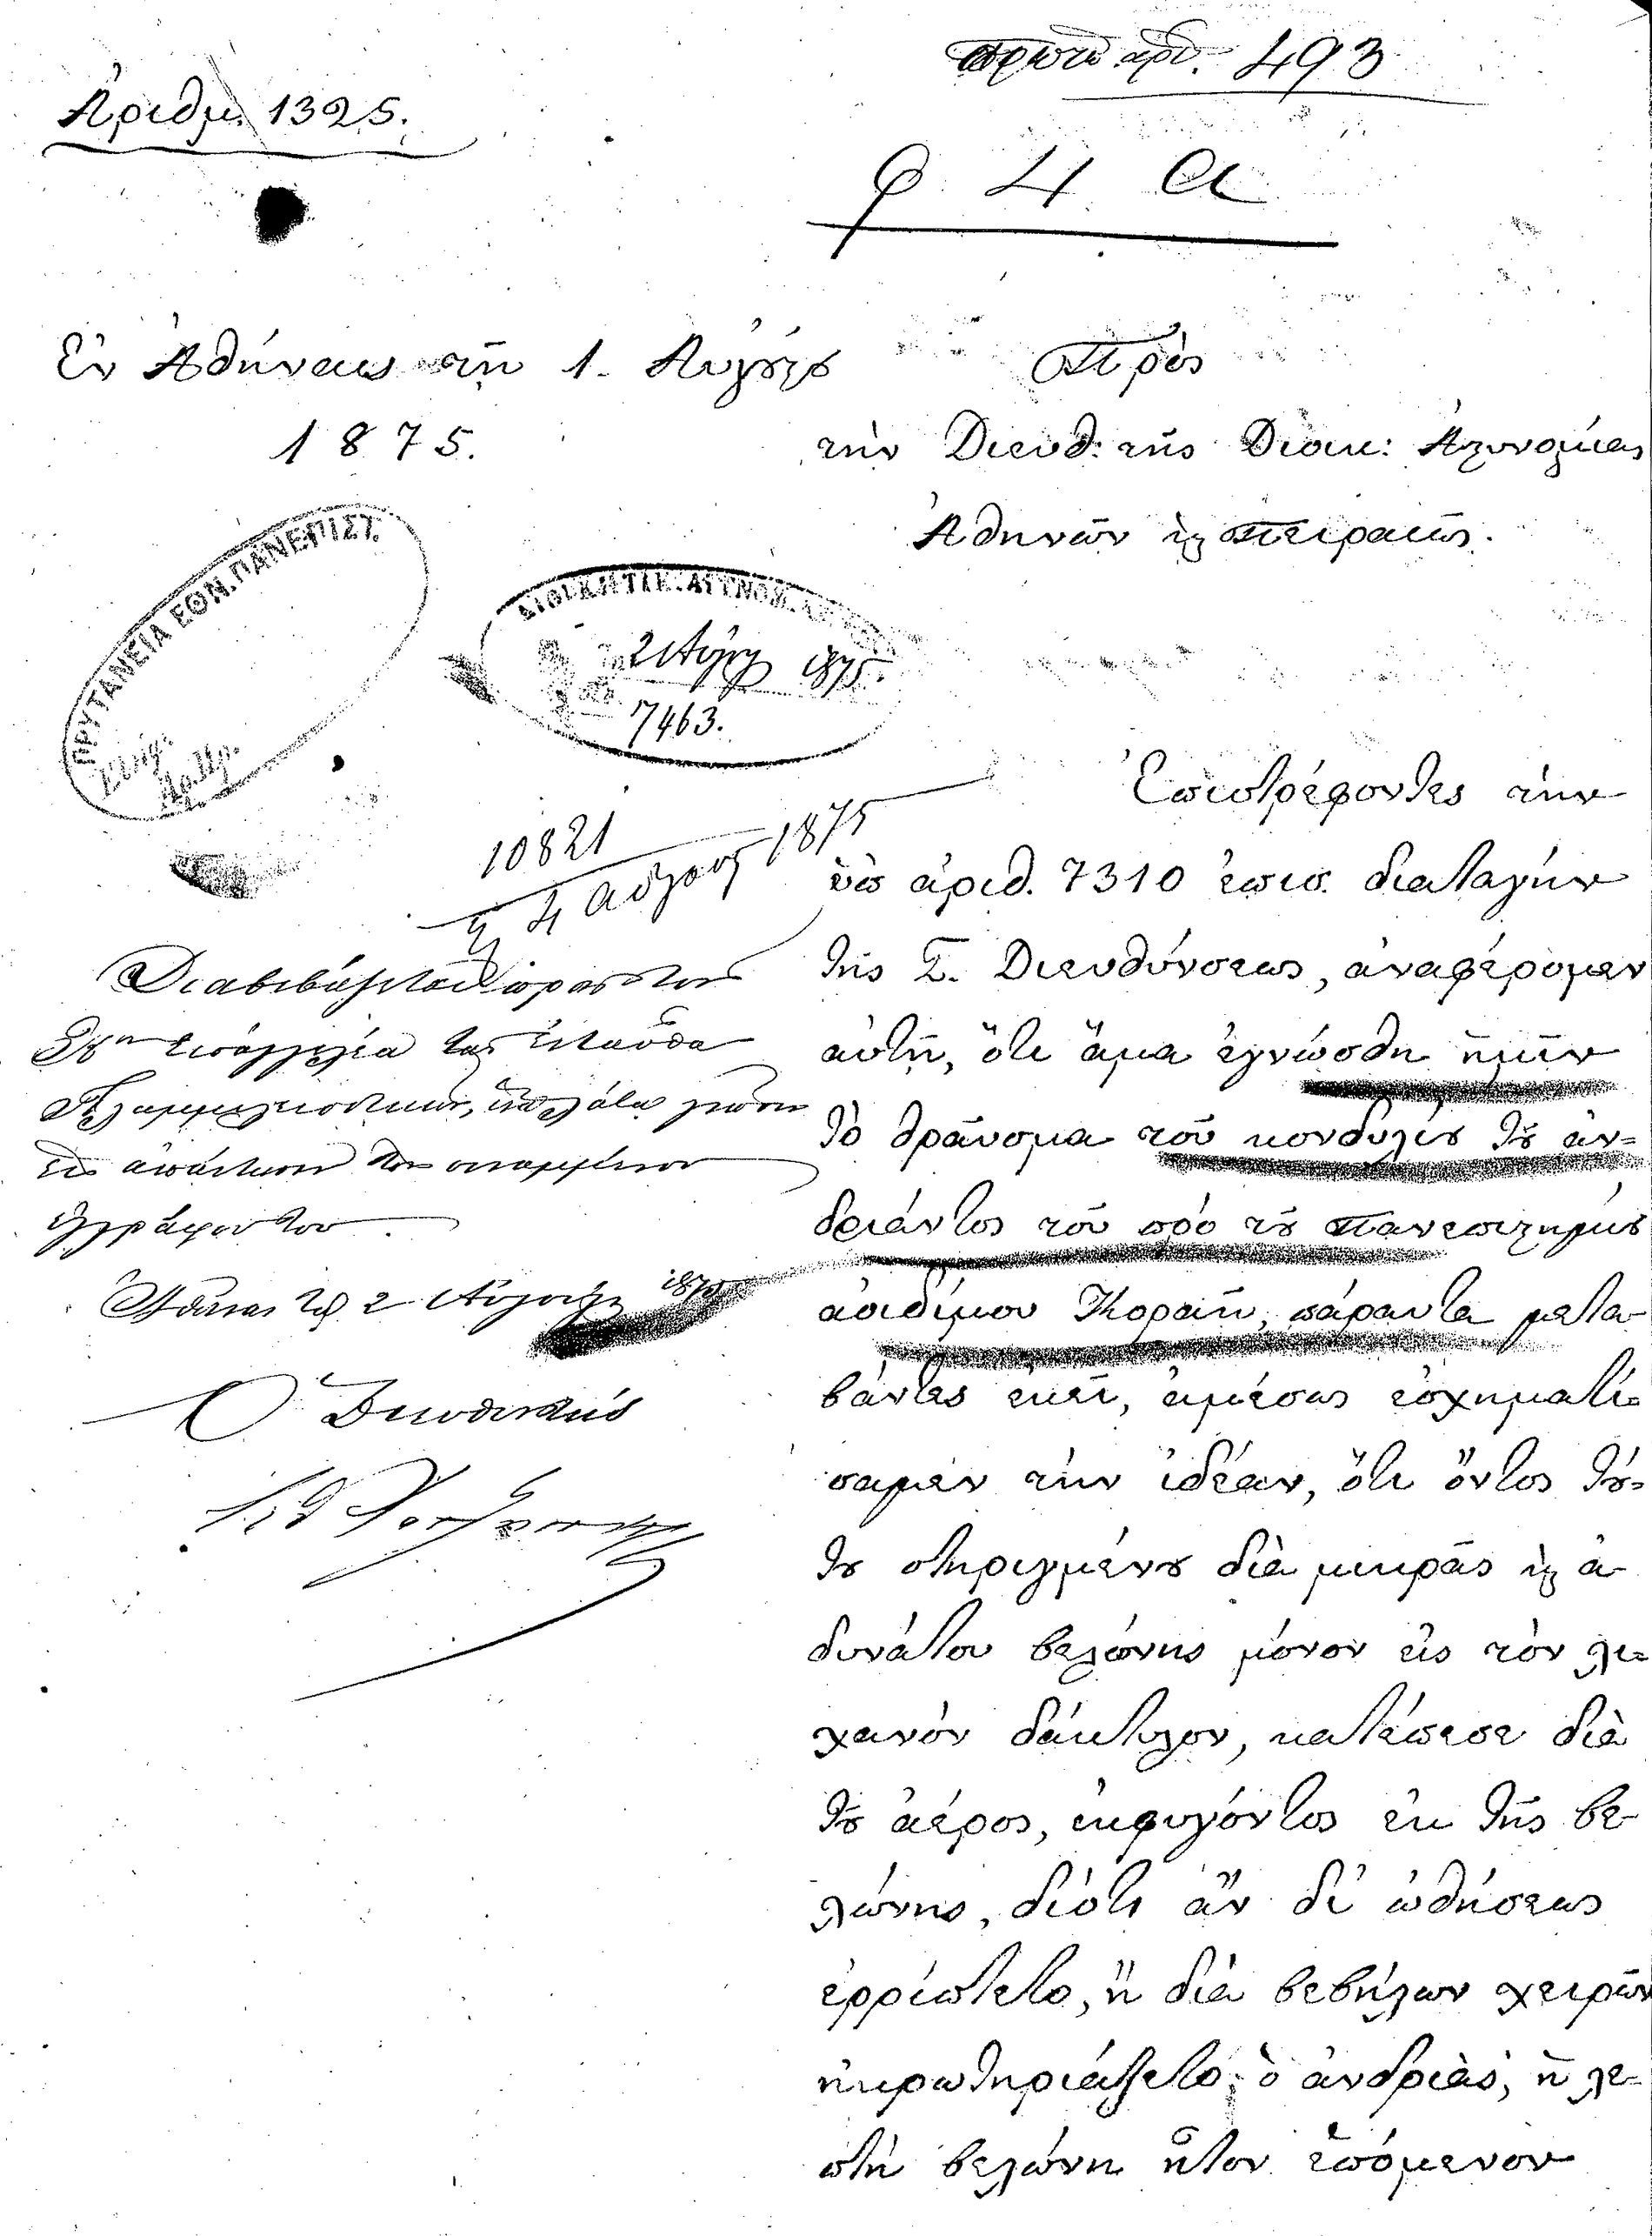 πρωτ. αρθ. 493
Ἀριθμ. 1325.
φ 4 α
Ἐν Ἀθήναις τῇ 1. Αὐγούστου
1875.
Πρὸς
τὴν Διευθ: τῆς Διοικ: Ἀστυνομίας
Ἀθηνῶν καὶ Πειραιῶς.
ΠΡΥΤΑΝΕΙΑ ΕΘΝ. ΠΑΝΕΠΙΣΤ.
ΔΙΟΙΚΗΤΙΚ. ΑΣΤΥΝΟΜ.
2 Αὐγ 1875.
7463.
10821
τῇ 4 Αὐγούσ 1875
Ἐπιστρέφοντες τὴν
ὑπ ἀριθ. 7310 ἐπισ. διαταγὴν
τῆς Σ. Διευθύνσεως, ἀναφέρομεν
αὐτῇ, ὅτι ἅμα ἐγνώσθη ἡμῖν
τὸ θραῦσμα τοῦ κονδυλίου τοῦ ἀν=
δριάντος τοῦ πρὸ τοῦ Πανεπιστημίου
ἀοιδίμου Κοραῆ, πάραυτα μετα-
βάντες ἐκεῖ, ἀμέσως ἐσχηματί=
σαμεν τὴν ἰδέαν, ὅτι ὄντος τού=
του στηριγμένου διὰ μικρᾶς καὶ ἀ-
δυνάτου βελόνης μόνον εἰς τὸν λι=
χανὸν δάκτυλον, κατέπεσε διὰ
τοῦ ἀέρος, ἐκφυγόντος ἐκ τῆς βε-
λώνης, διότι ἂν δι' ὠθήσεως
ἐρρίπτετο, ἢ διὰ βεβήλων χειρῶν
ἠκρωτηριάζετο ὁ ἀνδριὰς, ἡ λε=
πτὴ βελώνη ἦτον ἑπόμενον
Διαβιβάζεται πρὸς τὴν
Εἰσαγγελία τῶν ἐνταῦθα
Πλημμελειοδικῶν,
εἰς ἀπάντησιν τοῦ
ἐγγράφου του.
Ἀθῆναι τῇ 2 Αὐγούστου 1875
Ὁ Διευθυντὴς